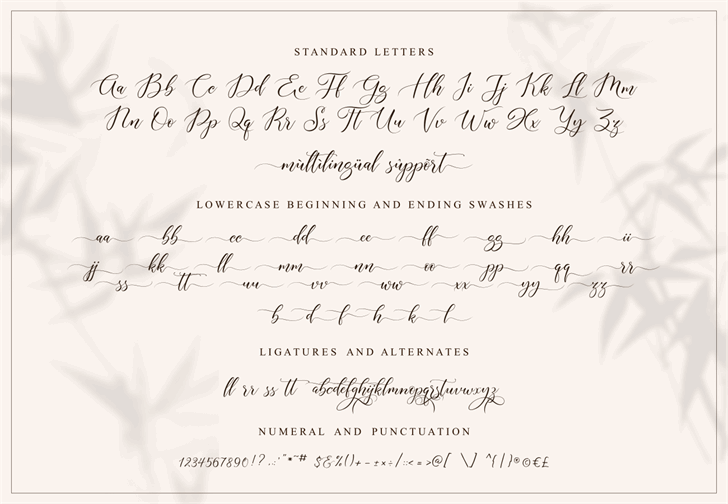 STANDARD LETTERS
Aa Bb Cc Dd Ee Ff Gg Hh Ii Jj Kk Ll Mm
Nn Oo Pp Qq Rr Ss Tt Uu Vv Ww Xx Yy Zz
mùltilingüal sùppört
LOWERCASE BEGINNING AND ENDING SWASHES
aa bb cc dd ee ff gg hh ii
jj kk ll mm nn oo pp qq rr
ss tt uu vv ww xx yy zz
b d f h k l
LIGATURES AND ALTERNATES
ll rr ss tt abcdefghijklmnopqrstuvwxyz
NUMERAL AND PUNCTUATION
1234567890!?.,:;"*~# $&%()+-±×÷/::<=>@[ \] ^{|}®©€£